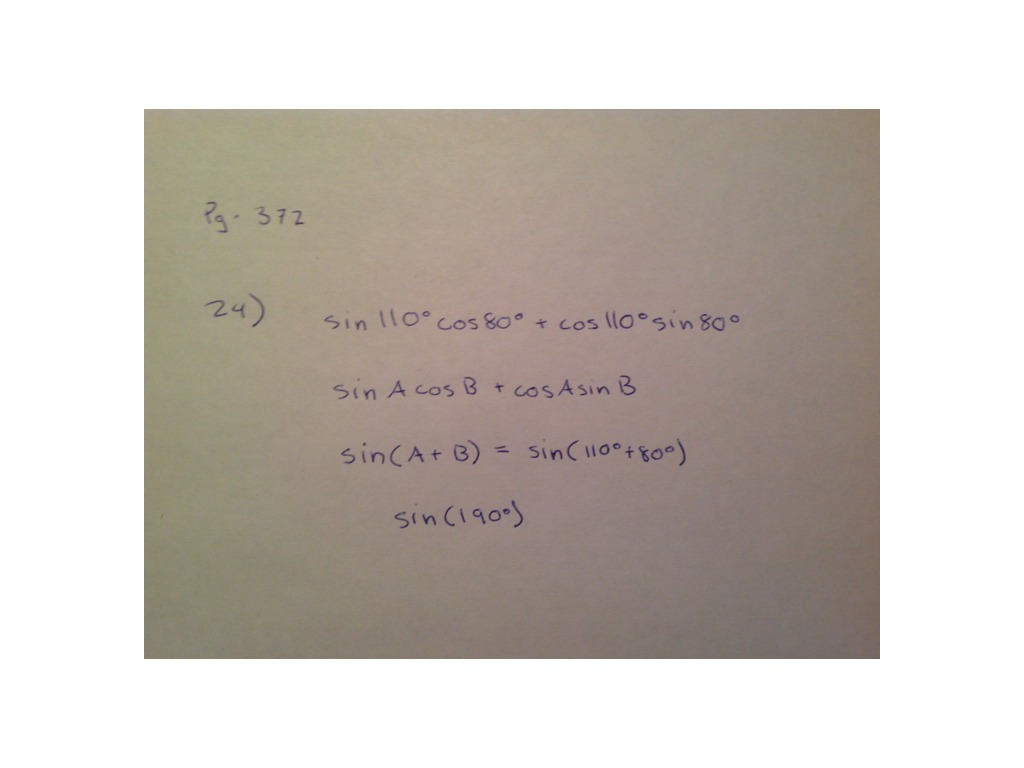 Pg. 372
24) sin 110° cos 80° + cos 110° sin 80°
sin A cos B + cos A sin B
sin(A + B) = sin(110° + 80°)
sin(190°)